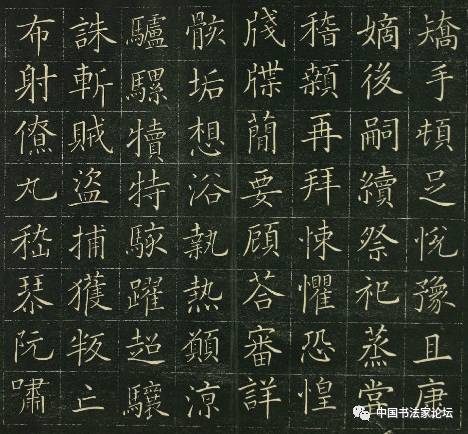 矯手頓足悅豫且康
嫡後嗣續祭祀蒸嘗
稽顙再拜悚懼恐惶
牋牒簡要顧荅審詳
骸垢想浴執熱願涼
驢騾犢特駭躍超驤
誅斬賊盜捕獲叛亡
布射僚丸嵇琴阮嘯
中国书法家论坛